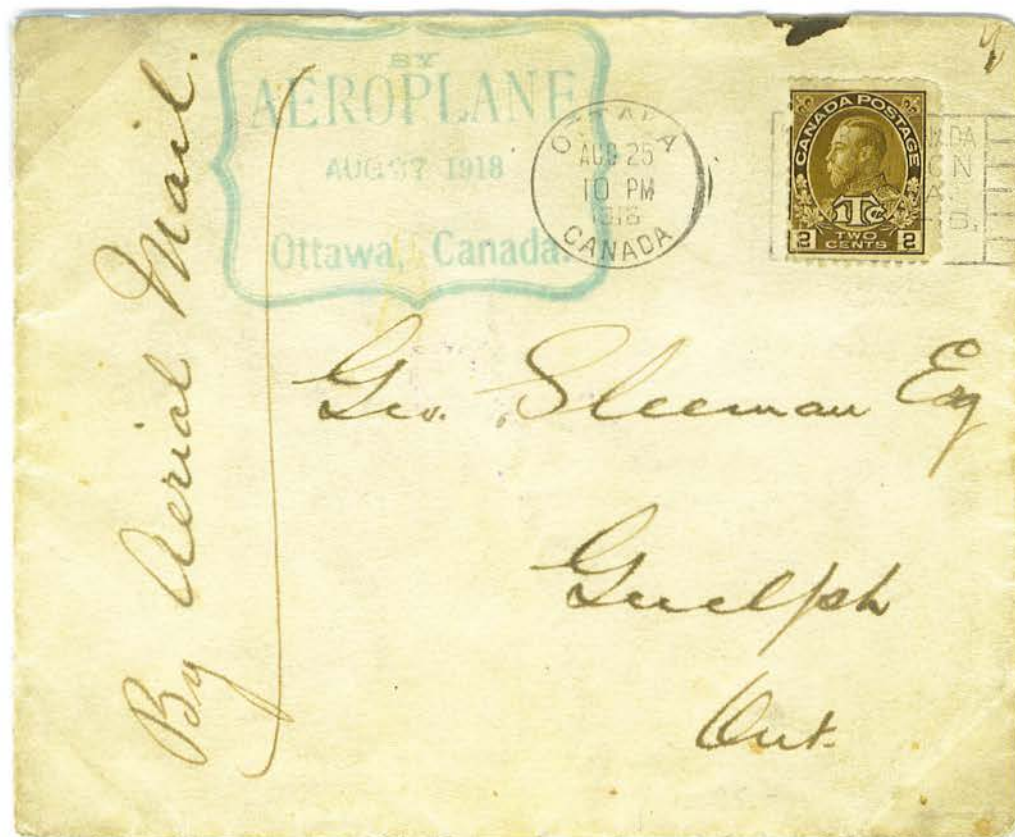 By Aerial Mail.
BY
AEROPLANE
AUG 27 1918
Ottawa, Canada.
OTTAWA
AUG 25
10 PM
CANADA
CANADA POSTAGE
1Tc
2 TWO CENTS 2
Geo. Sleeman Esq
Guelph
Ont.